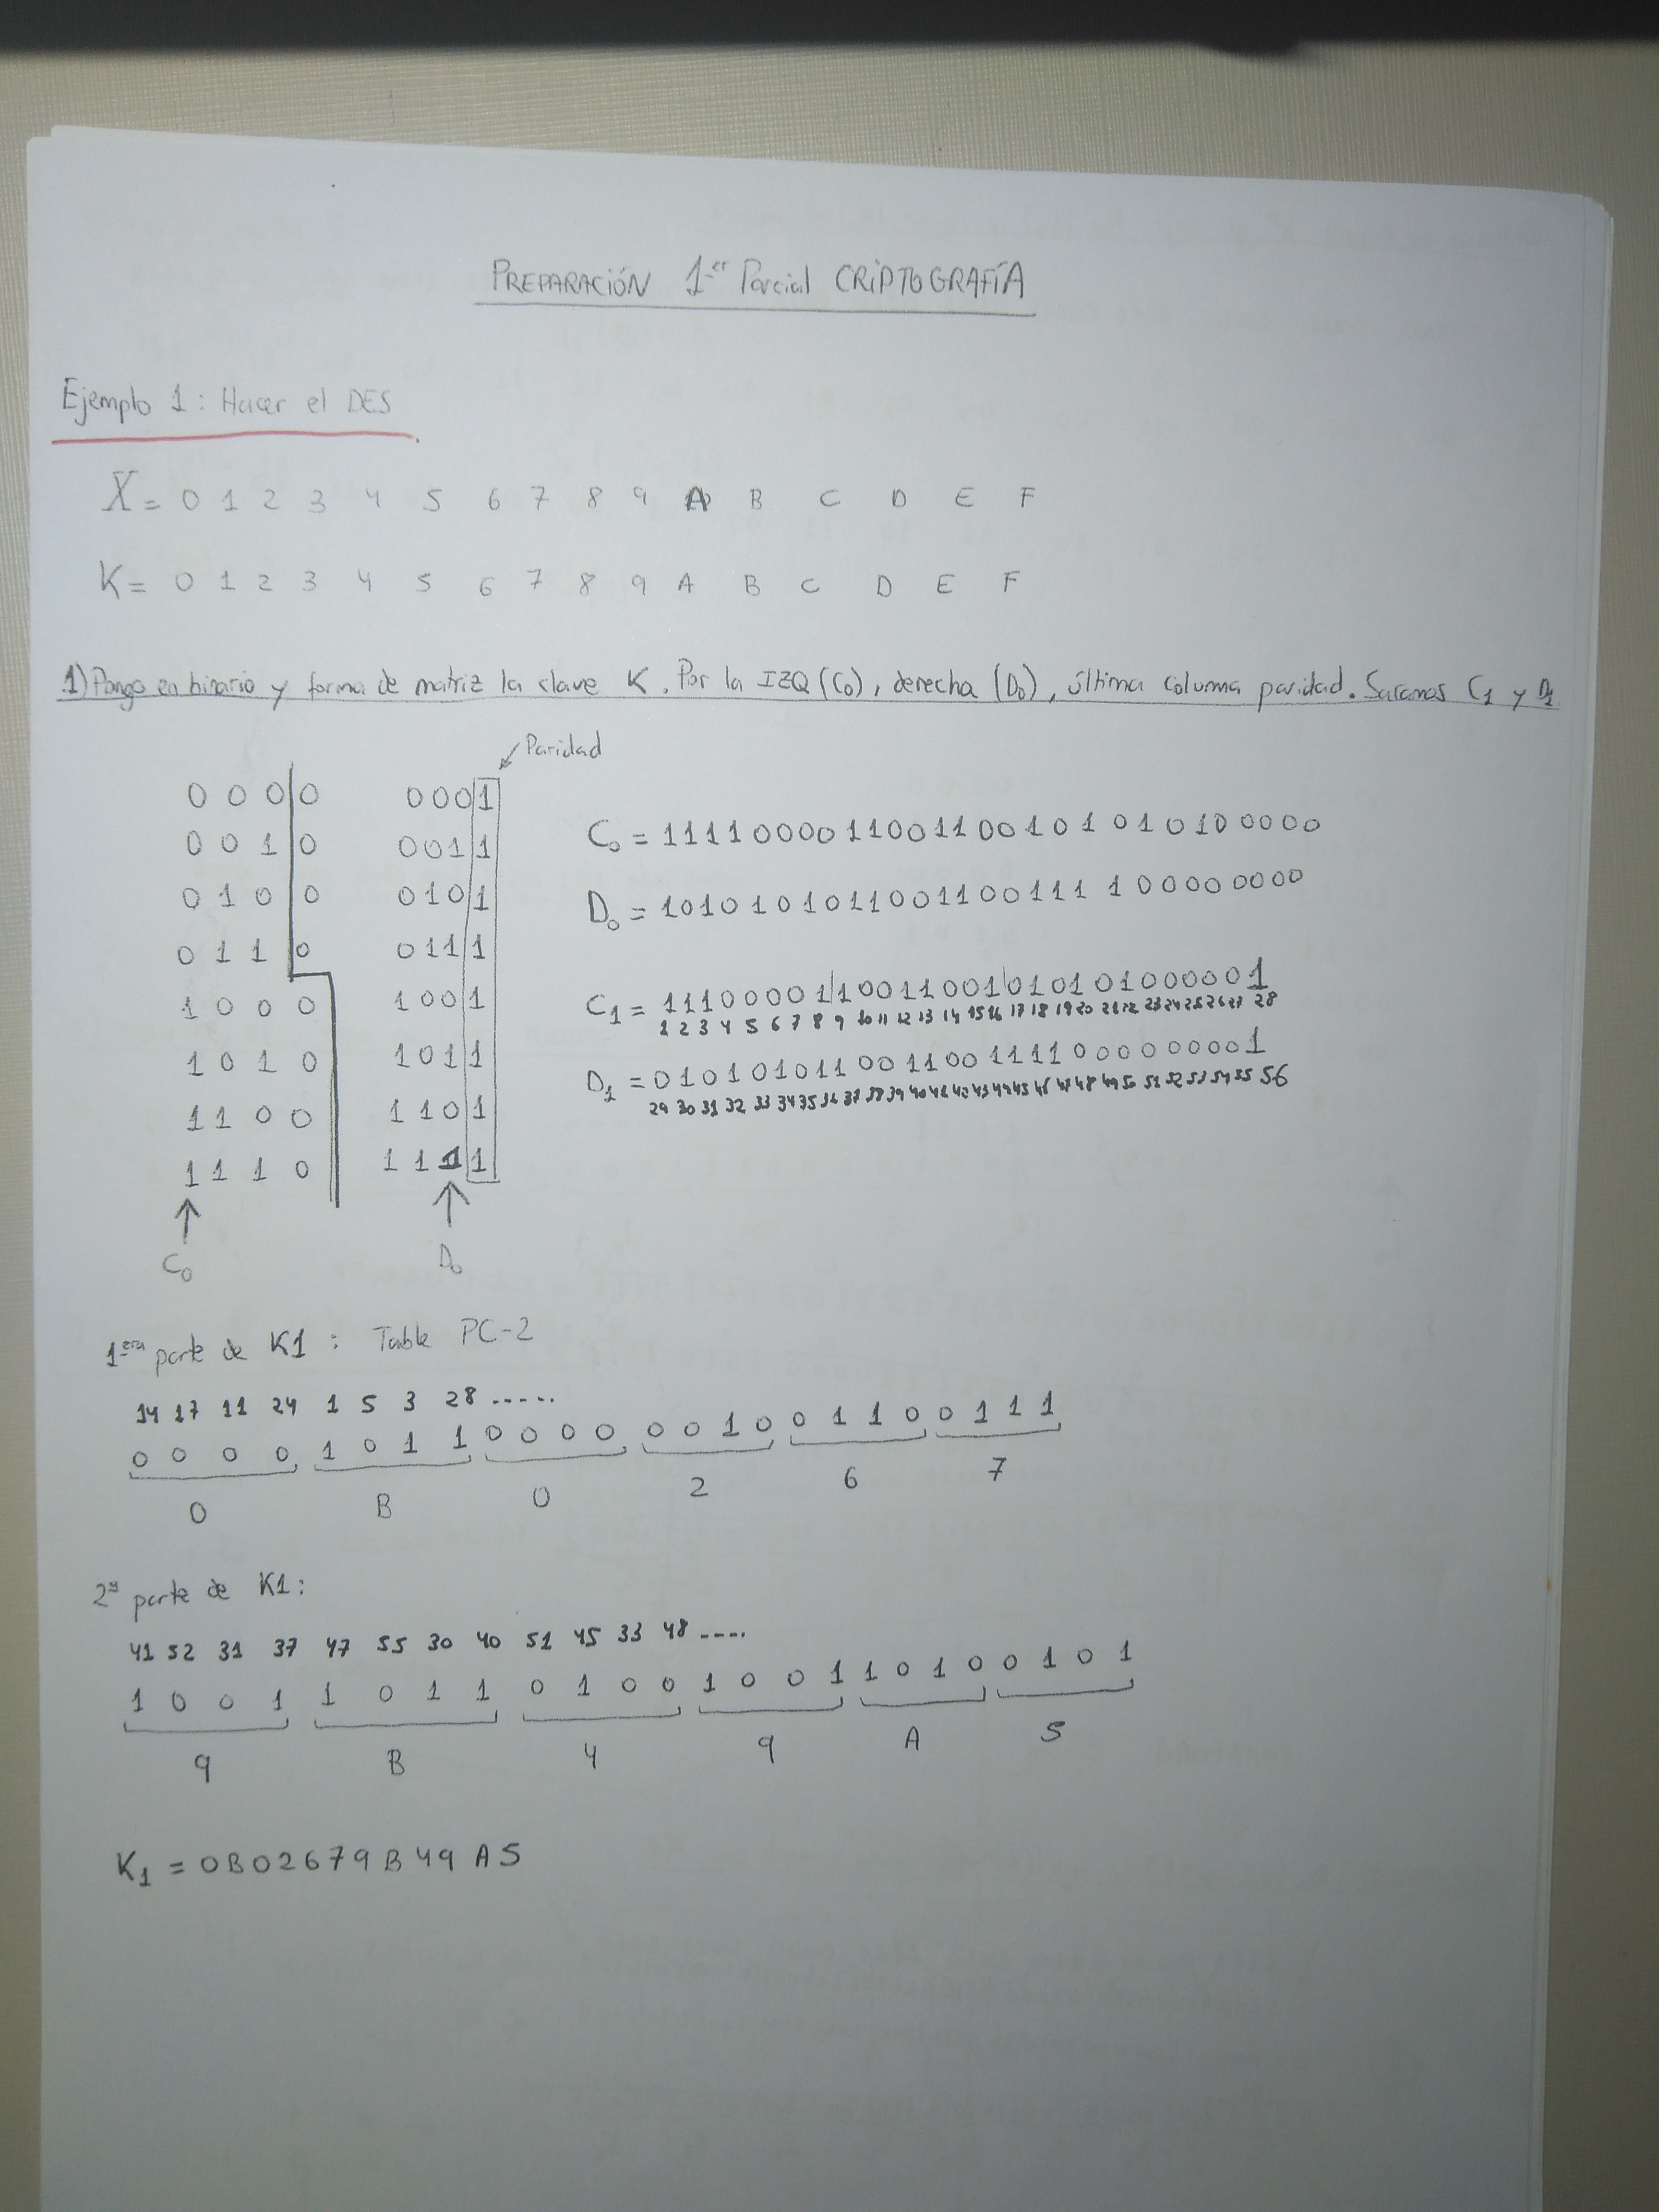 PREPARACIÓN 1er Parcial CRIPTOGRAFÍA
Ejemplo 1: Hacer el DES
X = 0 1 2 3 4 5 6 7 8 9 A B C D E F
K = 0 1 2 3 4 5 6 7 8 9 A B C D E F
1) Pongo en binario y forma de matriz la clave K. Por la IZQ (C0), derecha (D0), última columna paridad. Sacamos C1 y D1
Paridad
0 0 0 0 0 0 0 1
0 0 1 0 0 0 1 1
0 1 0 0 0 1 0 1
0 1 1 0 0 1 1 1
1 0 0 0 1 0 0 1
1 0 1 0 1 0 1 1
1 1 0 0 1 1 0 1
1 1 1 0 1 1 1 1
C0
D0
C0 = 1111000011001100101010100000
D0 = 1010101011001100111100000000
C1 = 1110000110011001010101000001
1 2 3 4 5 6 7 8 9 10 11 12 13 14 15 16 17 18 19 20 21 22 23 24 25 26 27 28
D1 = 0101010110011001111000000001
29 30 31 32 33 34 35 36 37 38 39 40 41 42 43 44 45 46 47 48 49 50 51 52 53 54 55 56
1era parte de K1: Table PC-2
14 17 11 24 1 5 3 28 ......
0 0 0 0 1 0 1 1 0 0 0 0 0 0 1 0 0 1 1 0 0 1 1 1
0 B 0 2 6 7
2ª parte de K1:
41 52 31 37 47 55 30 40 51 45 33 48 ....
1 0 0 1 1 0 1 1 0 1 0 0 1 0 0 1 1 0 1 0 0 1 0 1
9 B 4 9 A 5
K1 = 0B02679B49A5